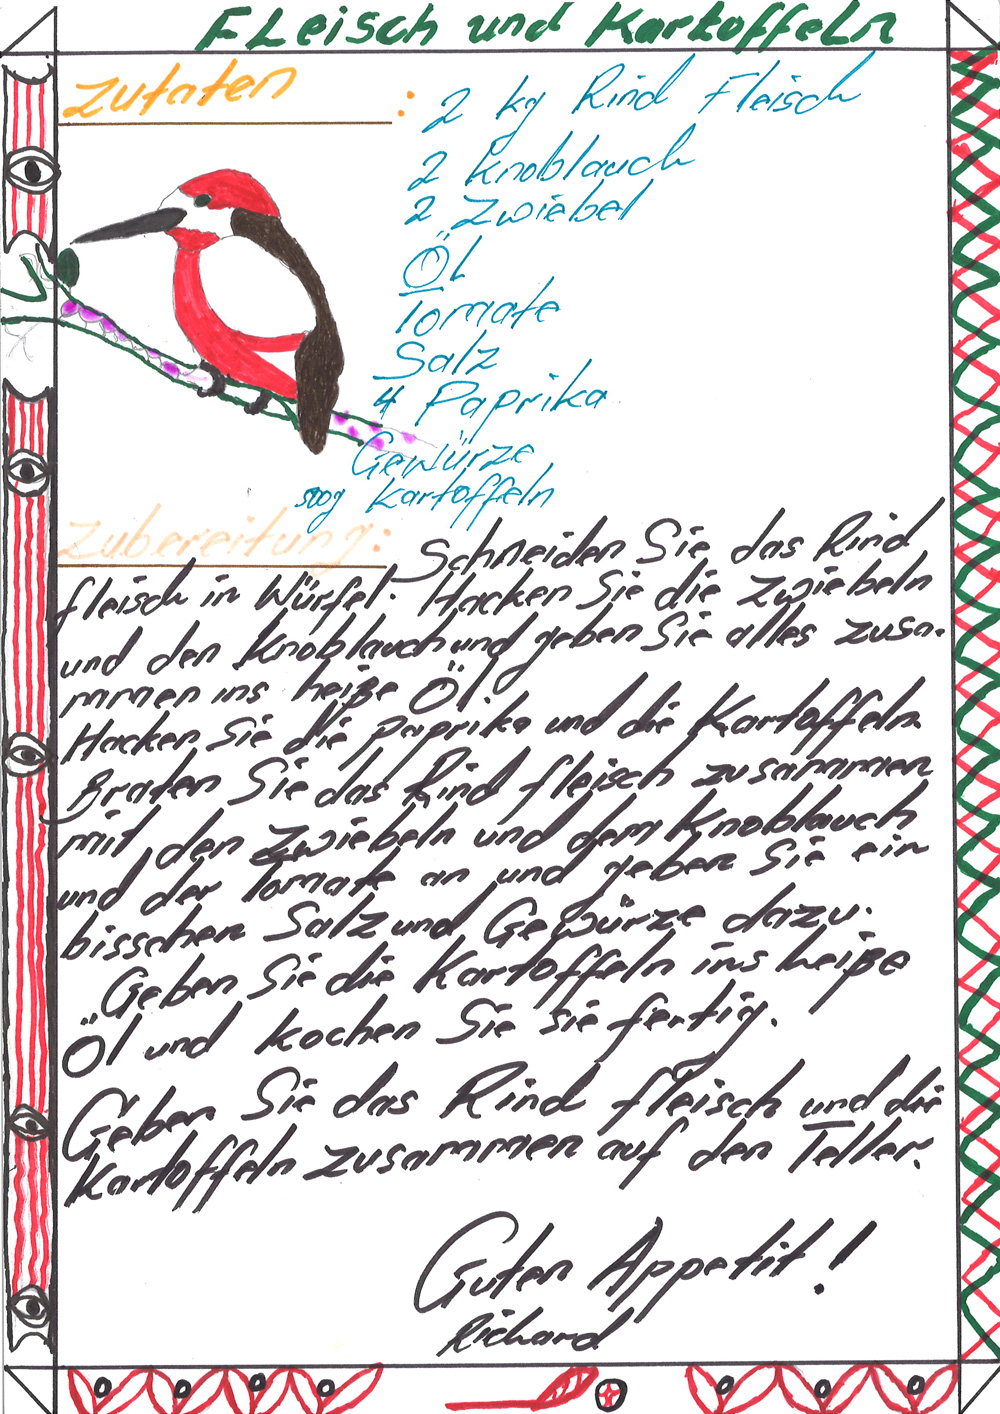 FLeisch und Kartoffeln
Zutaten : 2 kg Rind Fleisch
2 Knoblauch
2 Zwiebel
Öl
Tomate
Salz
4 Paprika
Gewürze
500g Kartoffeln
Zubereitung: Schneiden Sie das Rind
fleisch in Würfel. Hacken Sie die Zwiebeln
und den Knoblauch und geben Sie alles zusa-
mmen ins heiße Öl.
Hacken Sie die Paprika und die Kartoffeln.
Braten Sie das Rind fleisch zusammen
mit den Zwiebeln und dem Knoblauch
und der Tomate an und geben Sie ein
bisschen Salz und Gewürze dazu.
Geben Sie die Kartoffeln ins heiße
Öl und kochen Sie sie fertig.
Geben Sie das Rind fleisch und die
Kartoffeln zusammen auf den Teller.
Guten Appetit!
Richard